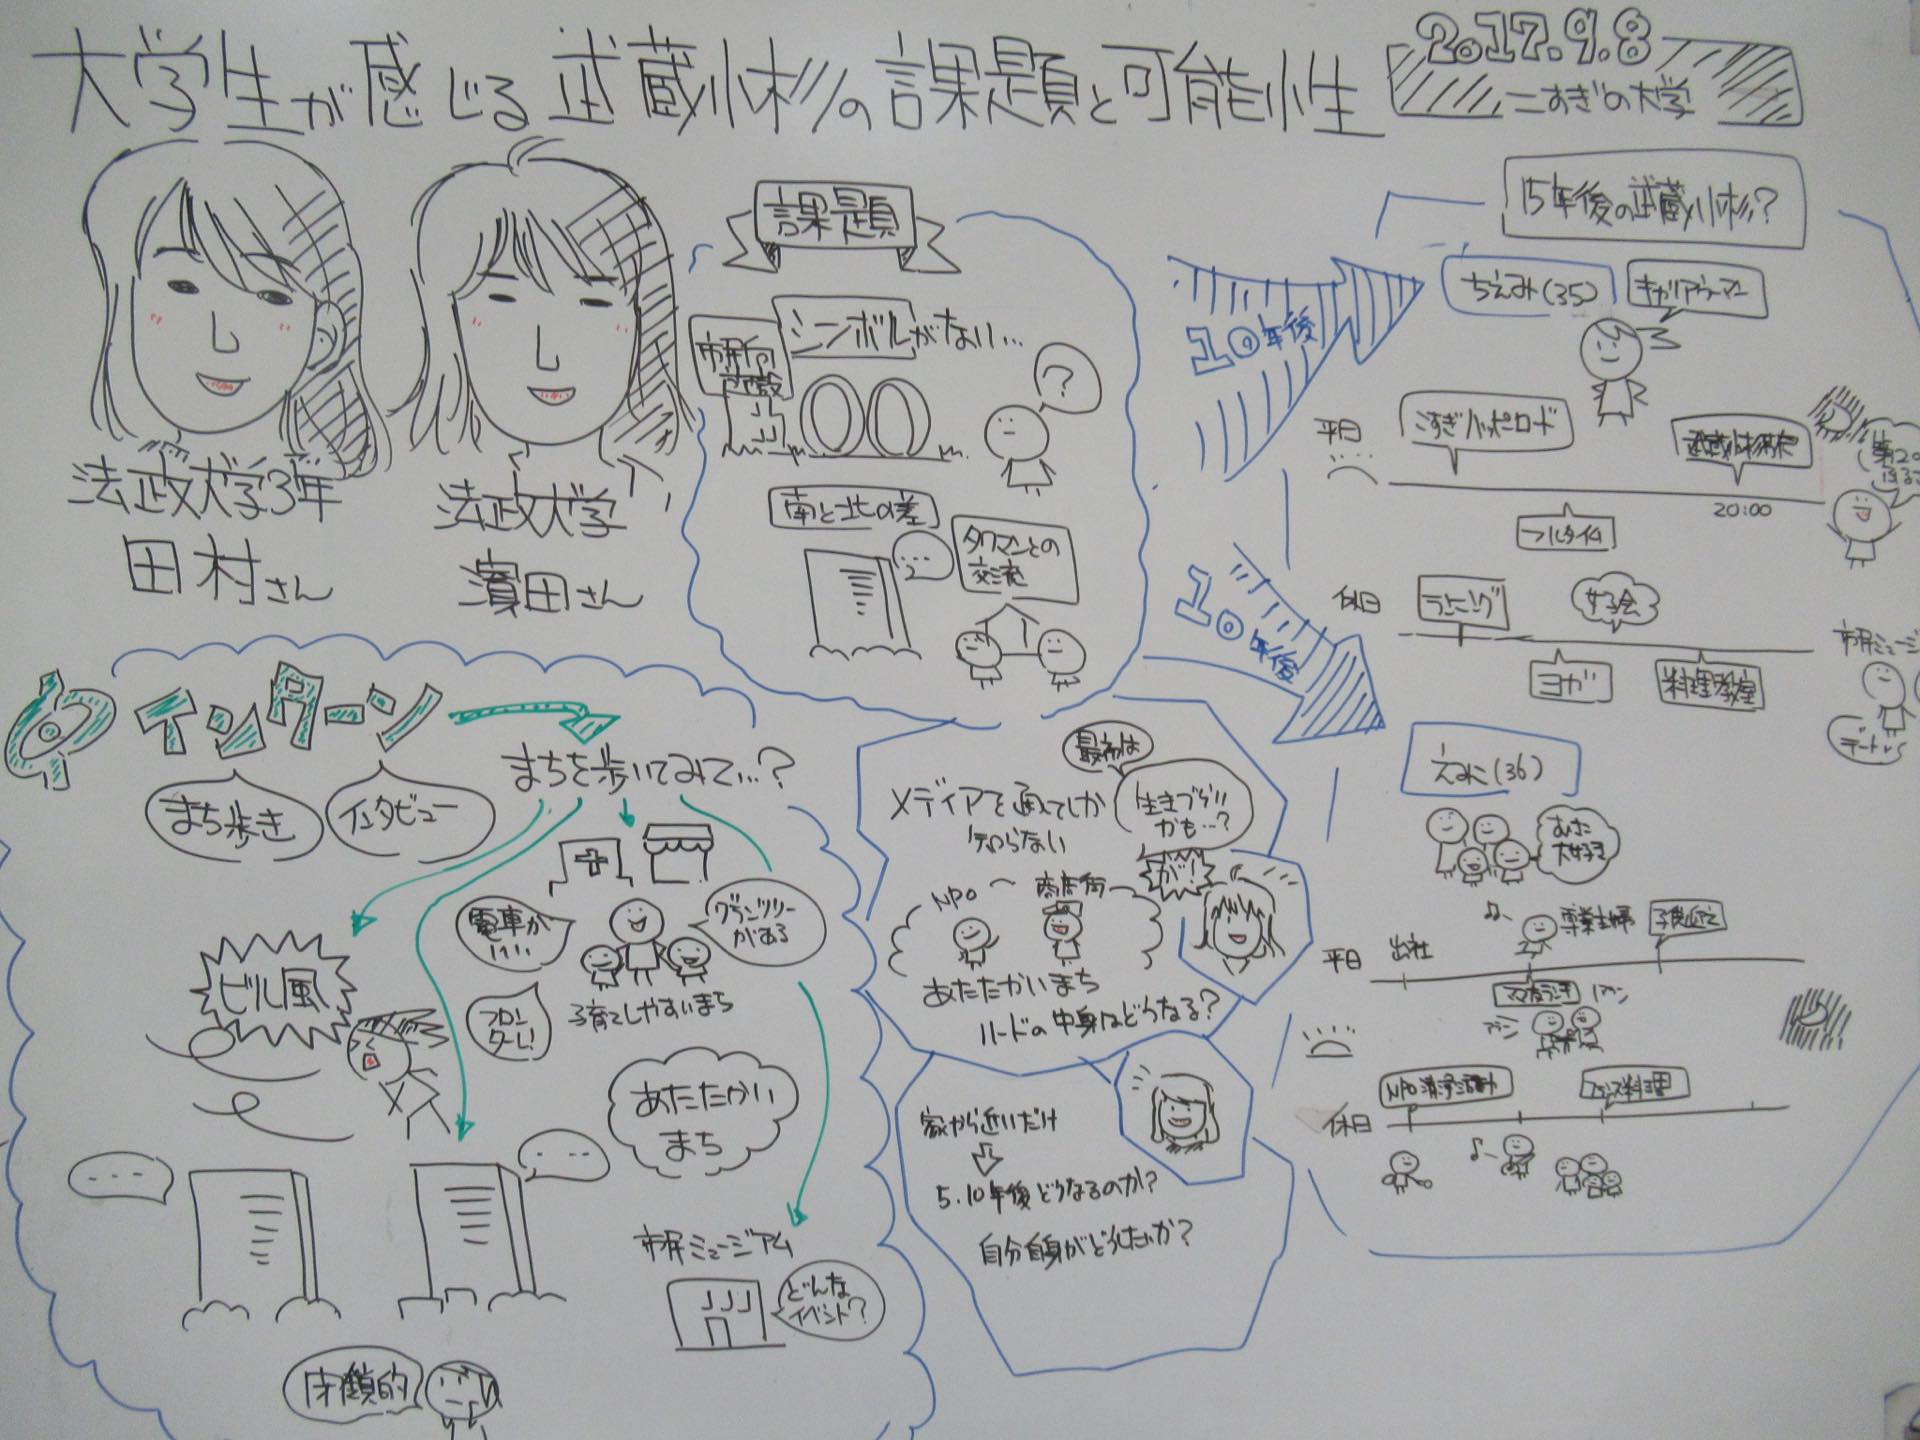 大学生が感じる武蔵小杉の課題と可能性
2017.9.8
こすぎの大学
法政大学3年
田村さん
法政大学
濱田さん
課題
シンボルがない…
?
南と北の差
タワマンとの
交流
10年後
10年後
15年後の武蔵小杉?
ちえみ(35)
キャリアウーマン
平日
フルタイム
20:00
休日
ランニング
女子会
ヨガ
料理教室
市民ミュージ
えみこ(36)
平日
出社
専業主婦
休日
NPO清掃活動
フランス料理
インターン
まち歩き
インタビュー
まちを歩いてみて…?
ビル風
電車が
いい
グランツリー
がある
フロン
ターレ!
子育てしやすいまち
あたたかい
まち
市民ミュージアム
どんな
イベント?
閉鎖的
最初は
メディアを通してしか
知らない
生きづらい
かも…?
が!
NPO
商店街
あたたかいまち
ハードの中身はどうなる?
家から近いだけ
5.10年後どうなるのか?
自分自身がどうしたいか?